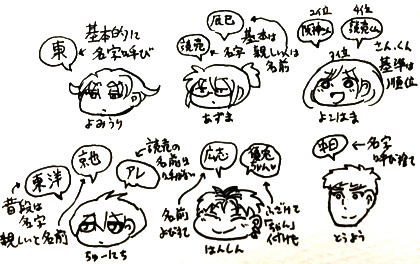 東
基本的に
名字呼び
よみうり
辰巳
読売
基本は
名字
親しい人は
名前
あずま
2位
阪神さん
4位
読売くん
3位
さん、くん
基準は
順位
よこはま
東洋
昔段は
名字
親しいと名前
京也
アレ
読売の
名前は
呼ばない
ちゅーにち
広志
名前
よびすて
読売ちゃん
ふざけて
「ちゃん」
づけも
はんしん
本日
名字
呼び捨て
とうよう